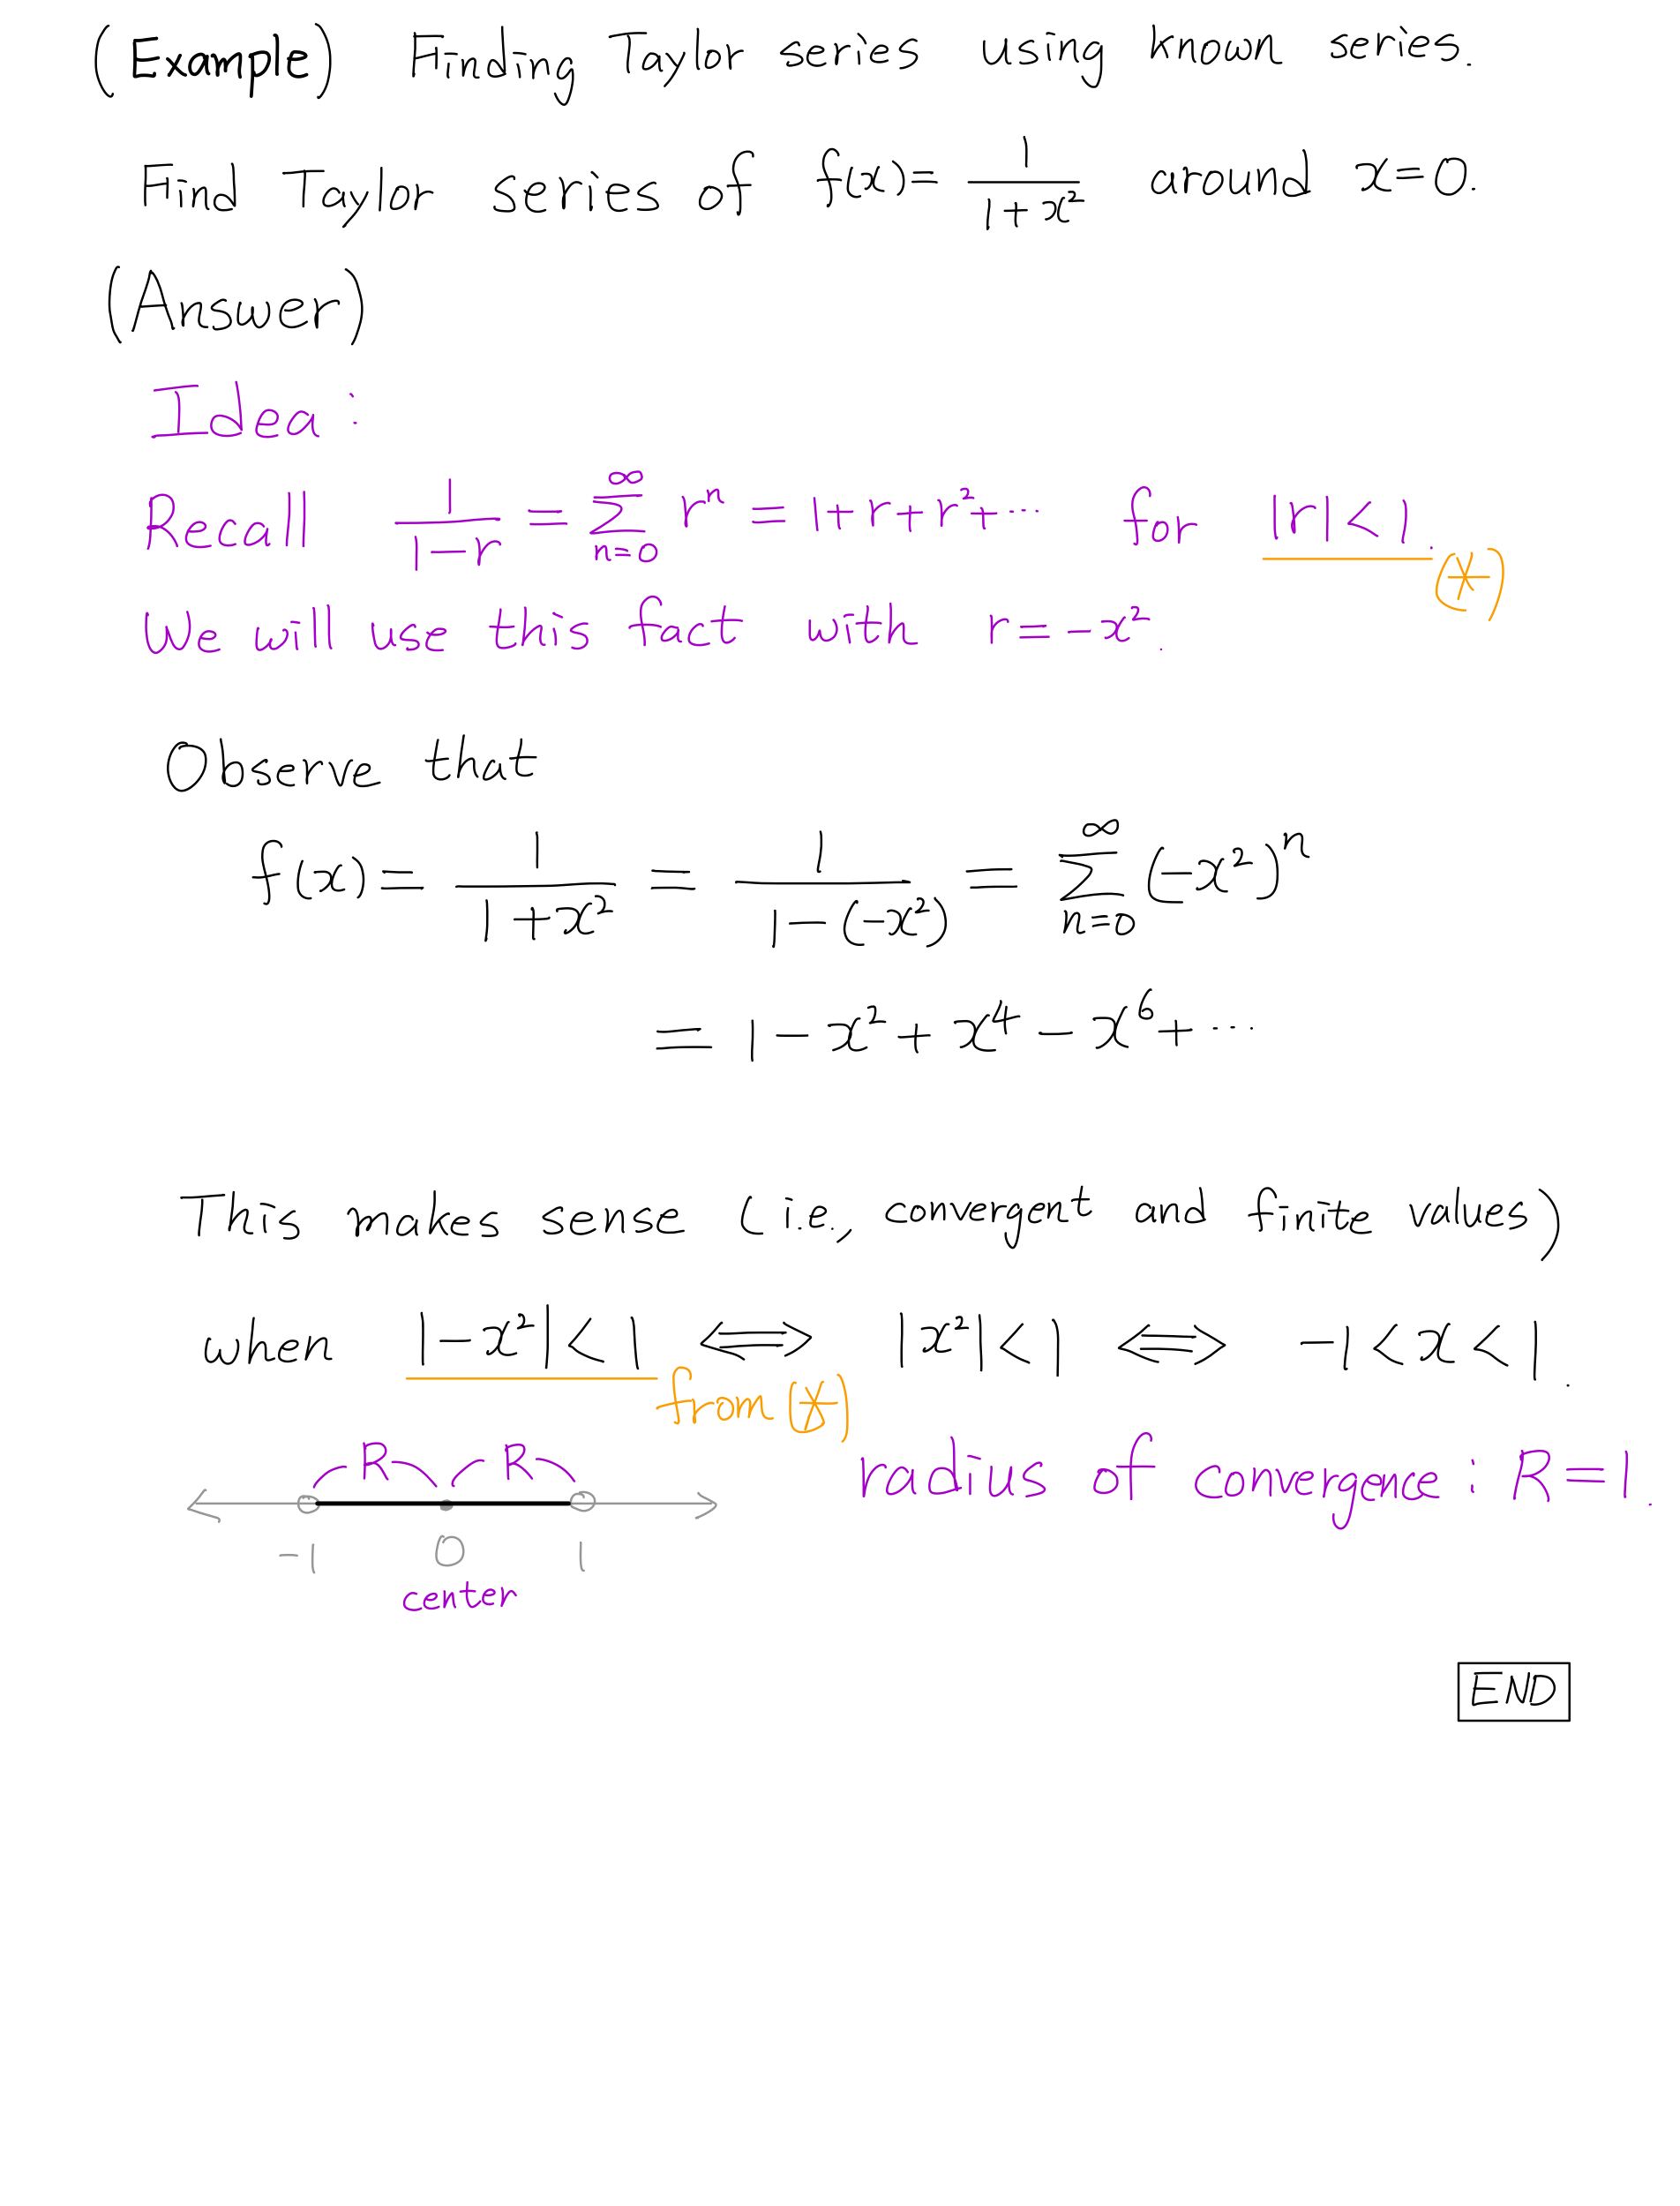 (Example) Finding Taylor series using known series.
Find Taylor series of f(x) = 1/(1+x²) around x=0.
(Answer)
Idea:
Recall 1/(1-r) = ∑_{n=0}^{∞} rⁿ = 1+r+r²+··· for |r|<1. (*)
We will use this fact with r=-x².
Observe that
f(x) = 1/(1+x²) = 1/(1-(-x²)) = ∑_{n=0}^{∞} (-x²)ⁿ
= 1-x²+x⁴-x⁶+···
This makes sense (i.e., convergent and finite values)
when |-x²|<1 ⟺ |x²|<1 ⟺ -1<x<1.
from (*)
R R radius of convergence: R=1.
-1 0 1
center
END